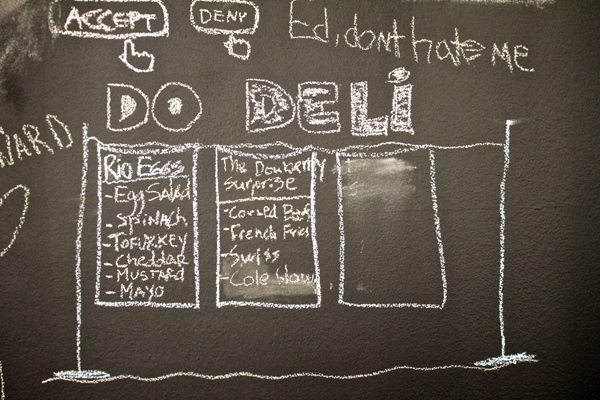 ACCEPT DENY
Ed, dont hate me
DO DELI
Rio Eggs
- Egg Salad
- Spinach
- Tofurkey
- Cheddar
- Mustard
- Mayo
The Dewberry
Surprise
- Corned Beef
- French Fries
- Swiss
- Cole Slaw